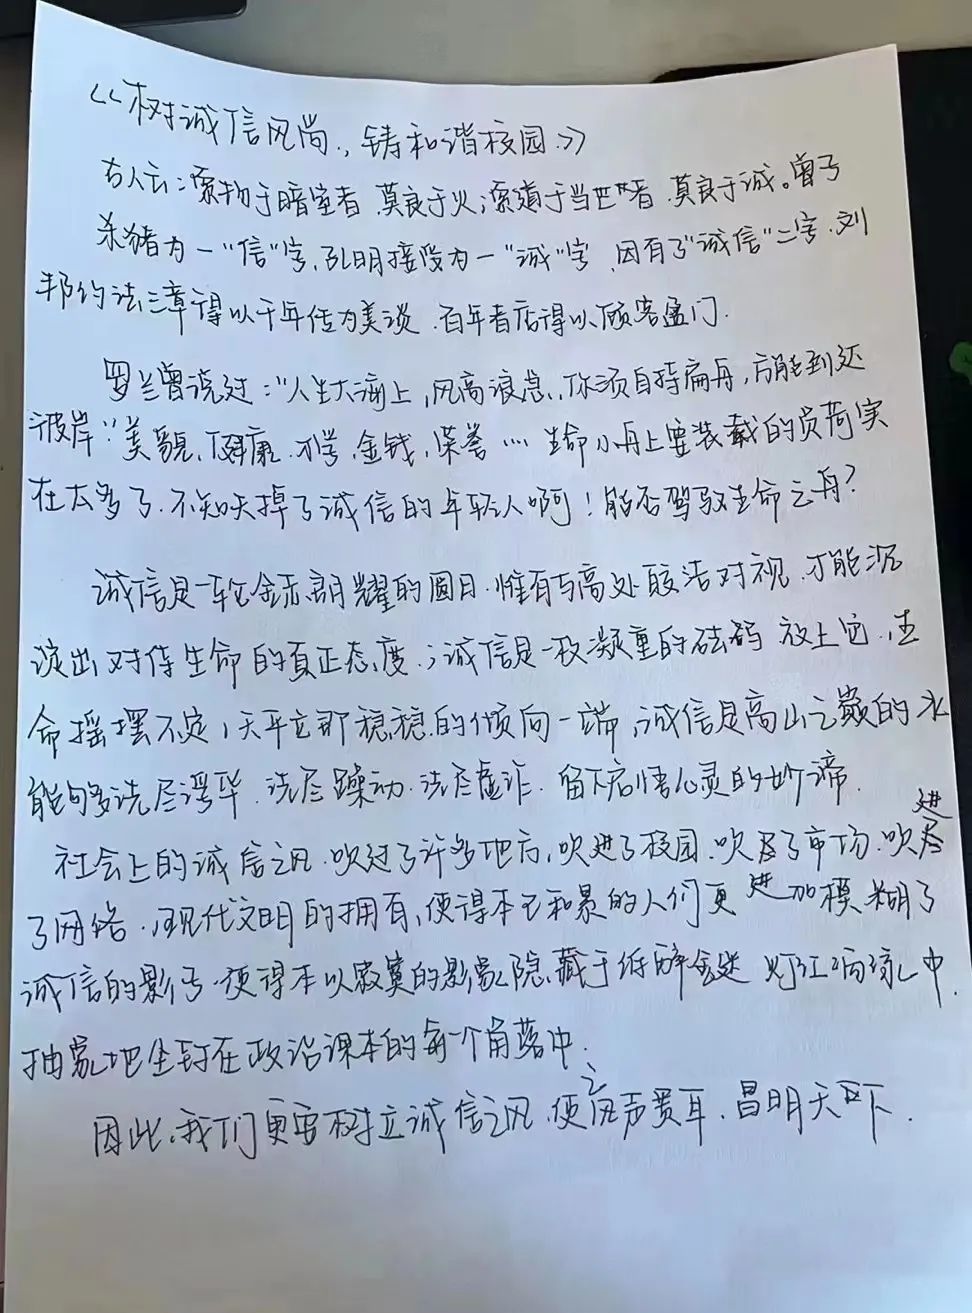 《树诚信风尚，铸和谐校园》
古人云：索物于暗室者，莫良于火；索道于当世者，莫良于诚。曾子
杀猪为一"信"字，孔明接受为一"诚"字，因有了"诚信"二字，刘
邦约法三章得以千年传为美谈，百年老店得以顾客盈门。
罗兰曾说过："人生大海上，风高浪急，你须自持扁舟，方能到达
彼岸"。美貌、健康、才学、金钱、荣誉…生命小舟上要装载的负荷实
在太多了，不知失掉了诚信的年轻人啊！能否驾驭生命之舟？
诚信是一轮金赤朗耀的圆日，惟有与高处皎洁对视，才能沉
淀出对待生命的真正态度；诚信是一枚凝重的砝码，放上它，生
命摇摆不定，天平立即稳稳的倾向一端，诚信是高山之巅的水
能够洗尽浮华，洗尽躁动，洗尽虚诈，留下启悟心灵的妙谛。
社会上的诚信之风，吹过了许多地方，吹进了校园，吹尽了市场，吹进
了网络，现代文明的拥有，使得本已和景的人们更进加模糊了
诚信的影号，使得本以寂寞的影象隐藏于纸醉金迷，灯红酒绿中，
抽象地坐在政治课本的每一个角落中。
因此，我们更要树立诚信之风，使之风声贯耳，昌明天下。